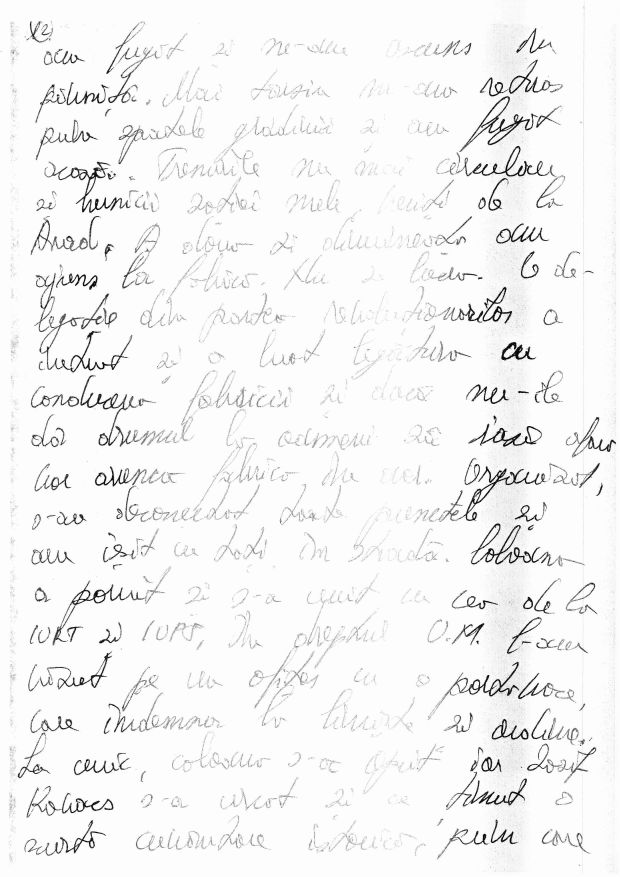 (2)
am fugit și ne-am ascuns în
pivniță. Mai târziu ne-am retras
prin spatele grădinii și am fugit
acasă. Trenurile nu mai circulau
și bunicii soției mele, veniți de la
Arad. A doua zi dimineața am
ajuns la fabrică. Nu se lucra. O de-
legație din partea revoluționarilor a
intrat și a luat legătura cu
conducerea fabricii și dacă nu-i
dă drumul la oameni să iasă afară
vor arunca fabrica în aer. Organizat,
s-au deconectat toate punctele și
am ieșit cu toții în stradă. Coloana
a pornit și s-a unit cu cea de la
IURT și IUPS, în dreptul U.M. l-am
văzut pe un ofițer cu o portavoce,
care îndemna la liniște și ordine.
La cenic, coloana s-a oprit iar Iosif
Kovacs s-a urcat și a ținut o
scurtă cuvântare istorică, prin care